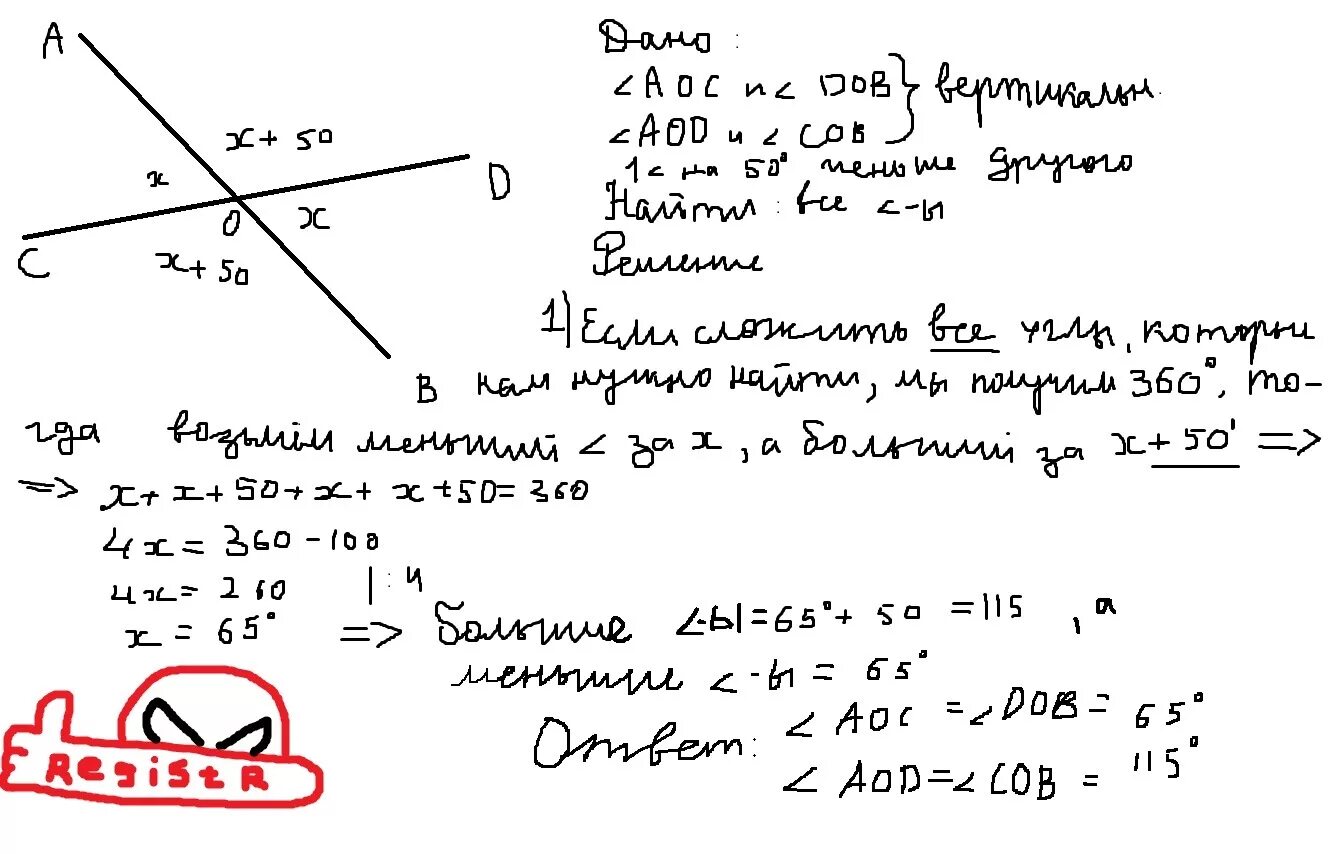 A
x + 50
x
D
O
x
C
x + 50
B
Дано:
∠AOC и ∠DOB } вертикальн.
∠AOD и ∠COB
1∠ на 50° меньше другого
Найти: все ∠-ы
Решение
1) Если сложить все углы, которые
нам нужно найти, мы получим 360°, то-
гда возьмём меньший ∠ за x, а больший за x + 50° =>
=> x + x + 50 + x + x + 50 = 360
4x = 360 - 100
4x = 260 | : 4
x = 65° => Большие ∠-ы = 65° + 50 = 115, а
меньшие ∠-ы = 65°
Ответ: ∠AOC = ∠DOB = 65°
∠AOD = ∠COB = 115°
RegistR